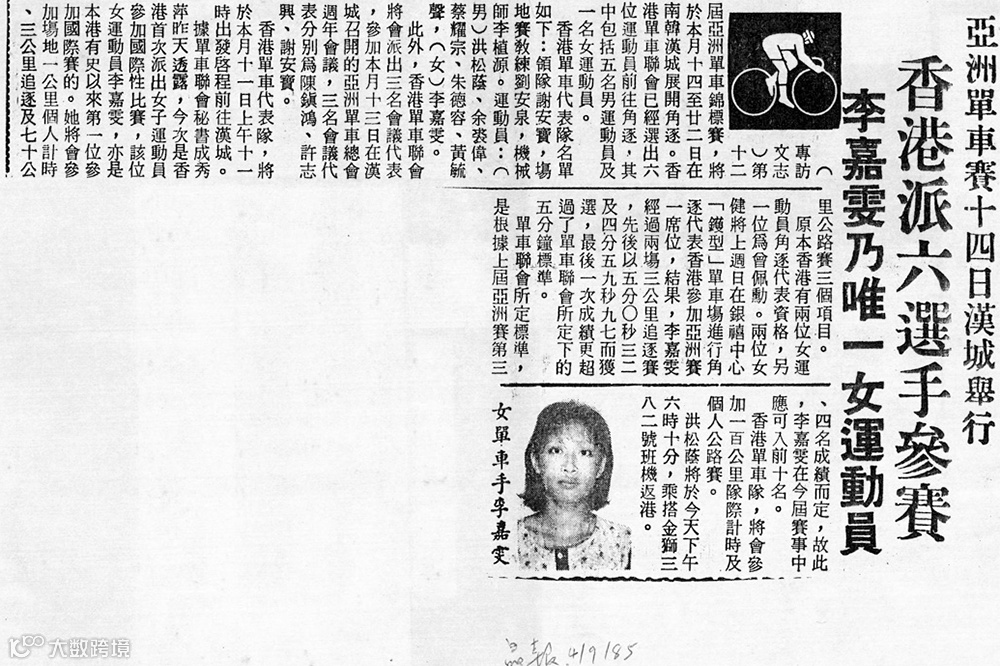 亞洲單車賽十四日漢城舉行
香港派六選手參賽
李嘉雯乃唯一女運動員
（
專訪
文志
）第
十二
屆亞洲單車錦標賽，將
於本月十四至廿二日在
南韓漢城展開角逐。香
港單車聯會已經選出六
位運動員前往角逐，其
中包括五名男運動員及
一名女運動員。
香港單車代表隊名單
如下：領隊謝安寶，場
地賽教練劉安泉，機械
師李植源。運動員：（
男）洪松蔭、余裘偉、
蔡耀宗、朱德容、黃毓
聲，（女）李嘉雯。
此外，香港單車聯會
將會派出三名會議代表
，參加本月十三日在漢
城召開的亞洲單車總會
週年會議，三名會議代
表分別為陳鎭鴻、許志
興、謝安寶。
香港單車代表隊，將
於本月十一日上午十一
時出發啓程前往漢城。
據單車聯會秘書成秀
萍昨天透露，今次是香
港首次派出女子運動員
參加國際性比賽，該位
女運動員李嘉雯，亦是
本港有史以來第一位參
加國際賽的。她將會參
加場地一公里個人計時
、三公里追逐及七十公
里公路賽三個項目。
原本香港有兩位女運
動員角逐代表資格，另
一位爲曾佩勳。兩位女
健將上週日在銀禧中心
「鑊型」單車場進行角
逐代表香港參加亞洲賽
一席位，結果，李嘉雯
經過兩場三公里追逐賽
，先後以五分〇秒三二
及四分五九秒九七而獲
選，最後一次成績更超
過了單車聯會所定下的
五分鐘標準。
單車聯會所定標準，
是根據上屆亞洲賽第三
、四名成績而定，故此
，李嘉雯在今屆賽事中
應可入前十名。
香港單車隊，將會參
加一百公里隊際計時及
個人公路賽。
洪松蔭將於今天下午
六時十分，乘搭金獅三
八二號班機返港。
女單車手李嘉雯
4/9/85
大数跨境